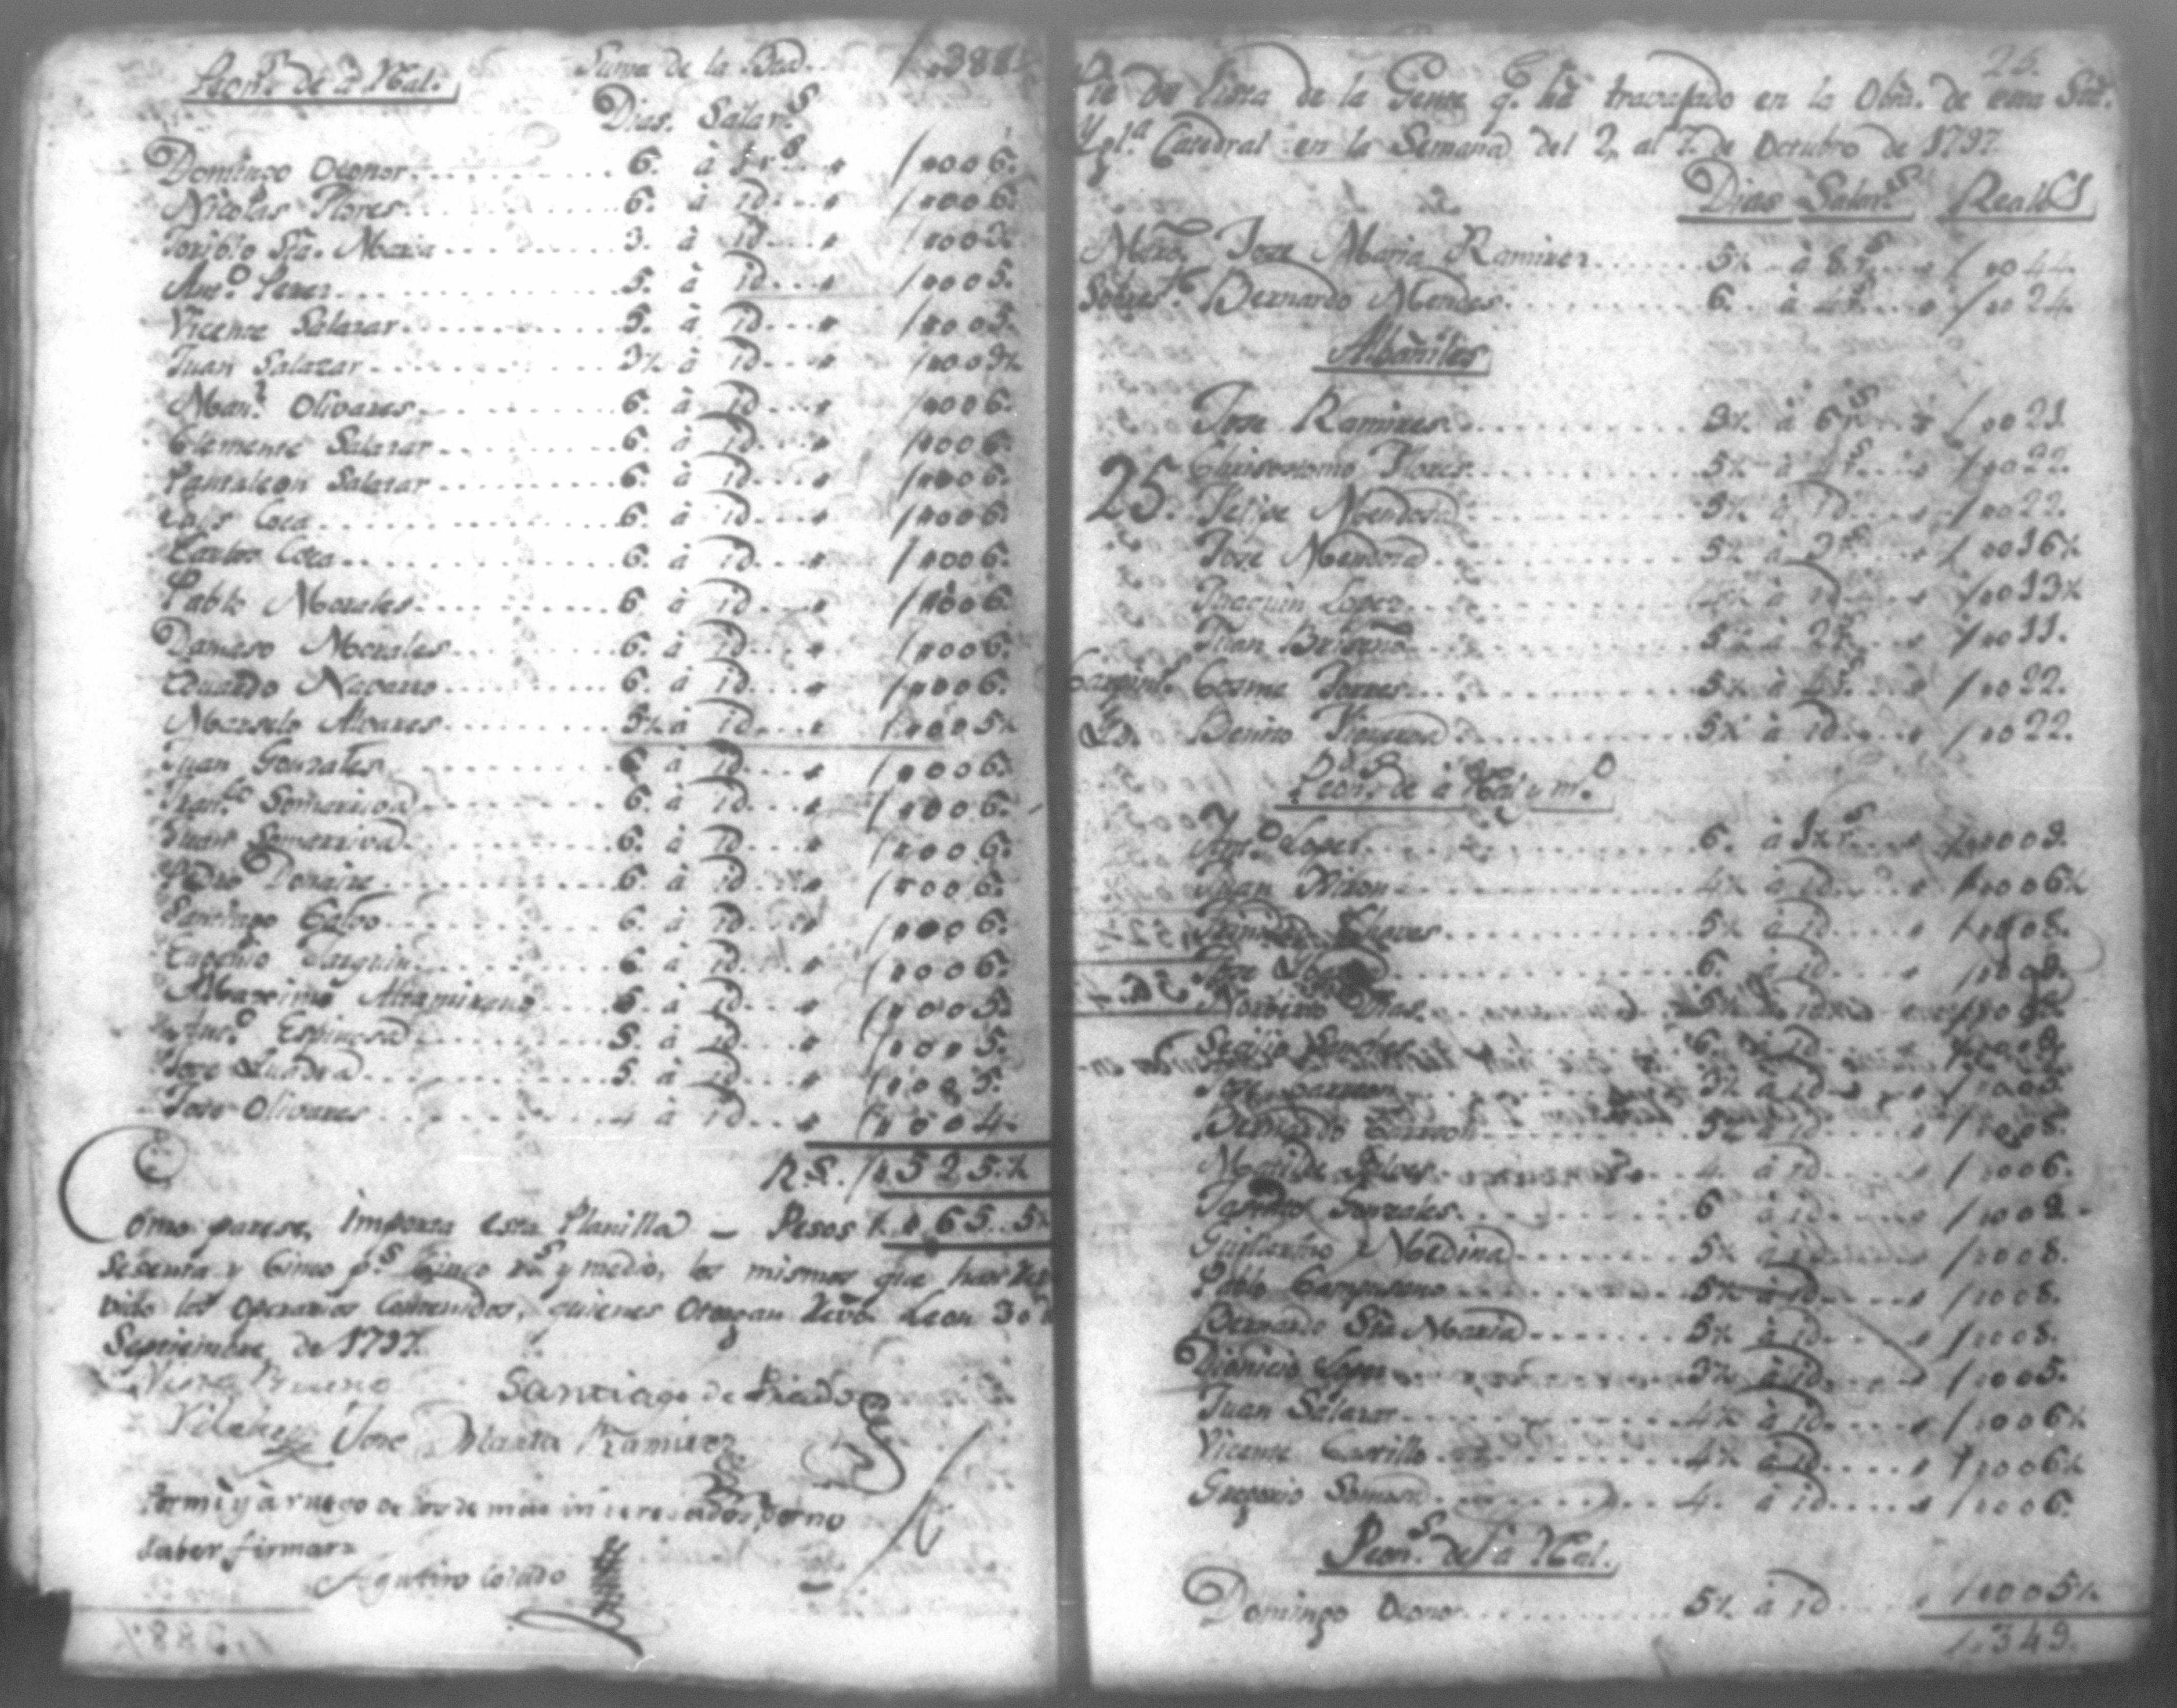 Peon.s de à Real. Suma de la Bta. / 388½
Dias. Salar.s
Domingo Oconor 6. à 1 r.s / 006.
Nicolas Flores 6. à id / 006.
Toribio Sta. Maria 3. à id / 003.
Ant.o Perez 5. à id / 005.
Vicente Salazar 5. à id / 005.
Juan Salazar 3½ à id / 003½
Man.l Olivares 6. à id / 006.
Clemente Salazar 6. à id / 006.
Pantaleon Salazar 6. à id / 006.
Luis Coca 6. à id / 006.
Carlos Coca 6. à id / 006.
Pablo Morales 6. à id / 006.
Damaso Morales 6. à id / 006.
Eduardo Navarro 6. à id / 006.
Marselo Alvares 5½ à id / 005½
Juan Gonzales 6 à id / 006.
Fran.co Somarriva 6. à id / 006.
Juan Somarriva 6. à id / 006.
Pedro Donaire 6. à id / 006.
Santiago Calvo 6. à id / 006.
Eugenio Jarquin 6. à id / 006.
Maximo Altamirano 5 à id / 005.
Ant.o Espinosa 5. à id / 005.
Jose Quadra 5. à id / 005.
Jose Olivares 4 à id / 004.
R.s. / 525.½
Como parese, importa esta Planilla — Pesos / 65..5½
Sesenta y Cinco p.s Cinco r.s y medio, los mismos que han
vido los operarios Contenidos, quienes otorgan Leon 30
Septiembre, de 1797.
Santiago de Priado
Jose Maria Ramirez
Por mi y à ruego de los de mas interesados por no
saber firmar
Agustino Colado
25.
Pie de Lista de la Gente q.e ha travajado en la Obra de esta Sta.
Ygl.a Catedral en la Semana del 2, al 7. de Octubre de 1797.
Dias Salar.s Reales
Mtro. Jose Maria Ramirez 5½ à 8 r.s / 0044.
Sobrest.e Bernardo Mendes 6. à 4 r.s / 0024.
Albañiles
Jose Ramires 3½ à 6 r.s / 0021
Chrisostomo Flores 5½ à 4 r.s / 0022.
25. Felipe Mendoza 5½ à id / 0022.
Jose Mendoza 5½ à 3 r.s / 0016½
Joaquin Lopez 4½ à id / 0013½
Juan Briseño 5½ à 2 r.s / 0011.
Carpint.s Cosme Torres 5½ à 4 r.s / 0022.
Benito Figueroa 5½ à id / 0022.
Peon.s de à Real y m.o
Ant.o Lopez 6. à 1½ r.s / 0009.
Juan 4½ à id / 006½
Chavas 5½ à id / 008.
Jose 6. à id / 009.
Norberto Dias 5½ à id
6. à id / 009.
Jose 3½ à id / 005.
Bernardo 5½ à id / 008.
Matilde 4. à id / 006.
Gonzales 6 à id / 009.
Guillermo Medina 5½ à id / 008.
Pablo Campusano 5½ à id / 008.
Bernardo Sta Maria 5½ à id / 008.
Dionicio Lopez 3½ à id / 005.
Juan Salazar 4½ à id / 006½
Vicente Castillo 4½ à id / 006½
Gregorio Somosa 4. à id / 006.
Peon.s de à Real.
Domingo Oconor 5½ à id / 005½
/. 349.